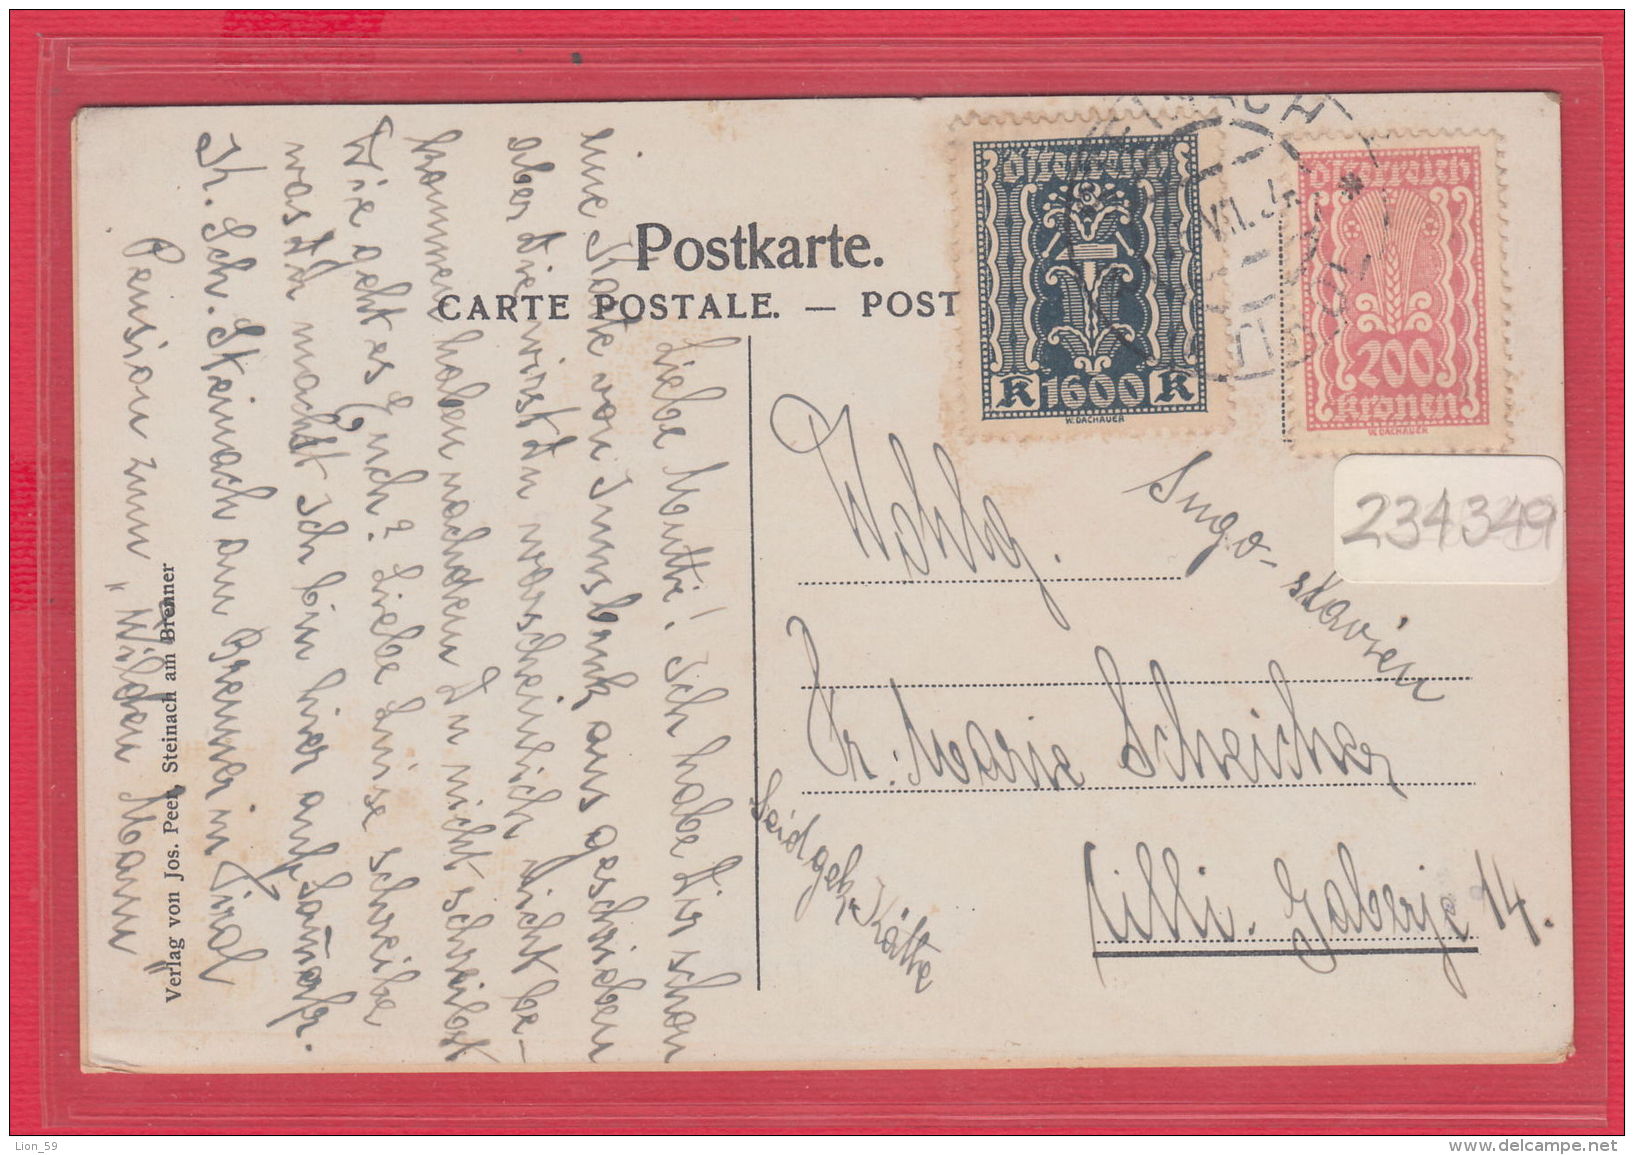 Postkarte.
CARTE POSTALE. — POST
Österreich
K 1600 K
W. DACHAUER
Österreich
200
kronen
W. DACHAUER
234349
Liebe Mutti! Ich habe Dir schon
eine Karte von Innsbruk aus geschrieben
aber die wirst Du warscheinlich nicht be-
kommen haben nachdem Du nicht schreibst
Wie geht es Euch? Liebe Luise schreibe
was Ihr macht Ich bin hier auf
Steinach am Brenner in Tirol
Pension zum „Wilden Mann"
Verlag von Jos. Peer, Steinach am Brenner
Wohlg.
Jugo-slavien
Fr. Marie Scheicher
Cilli. Gaberje 14.
Käthe
Lion_59
www.delcampe.net